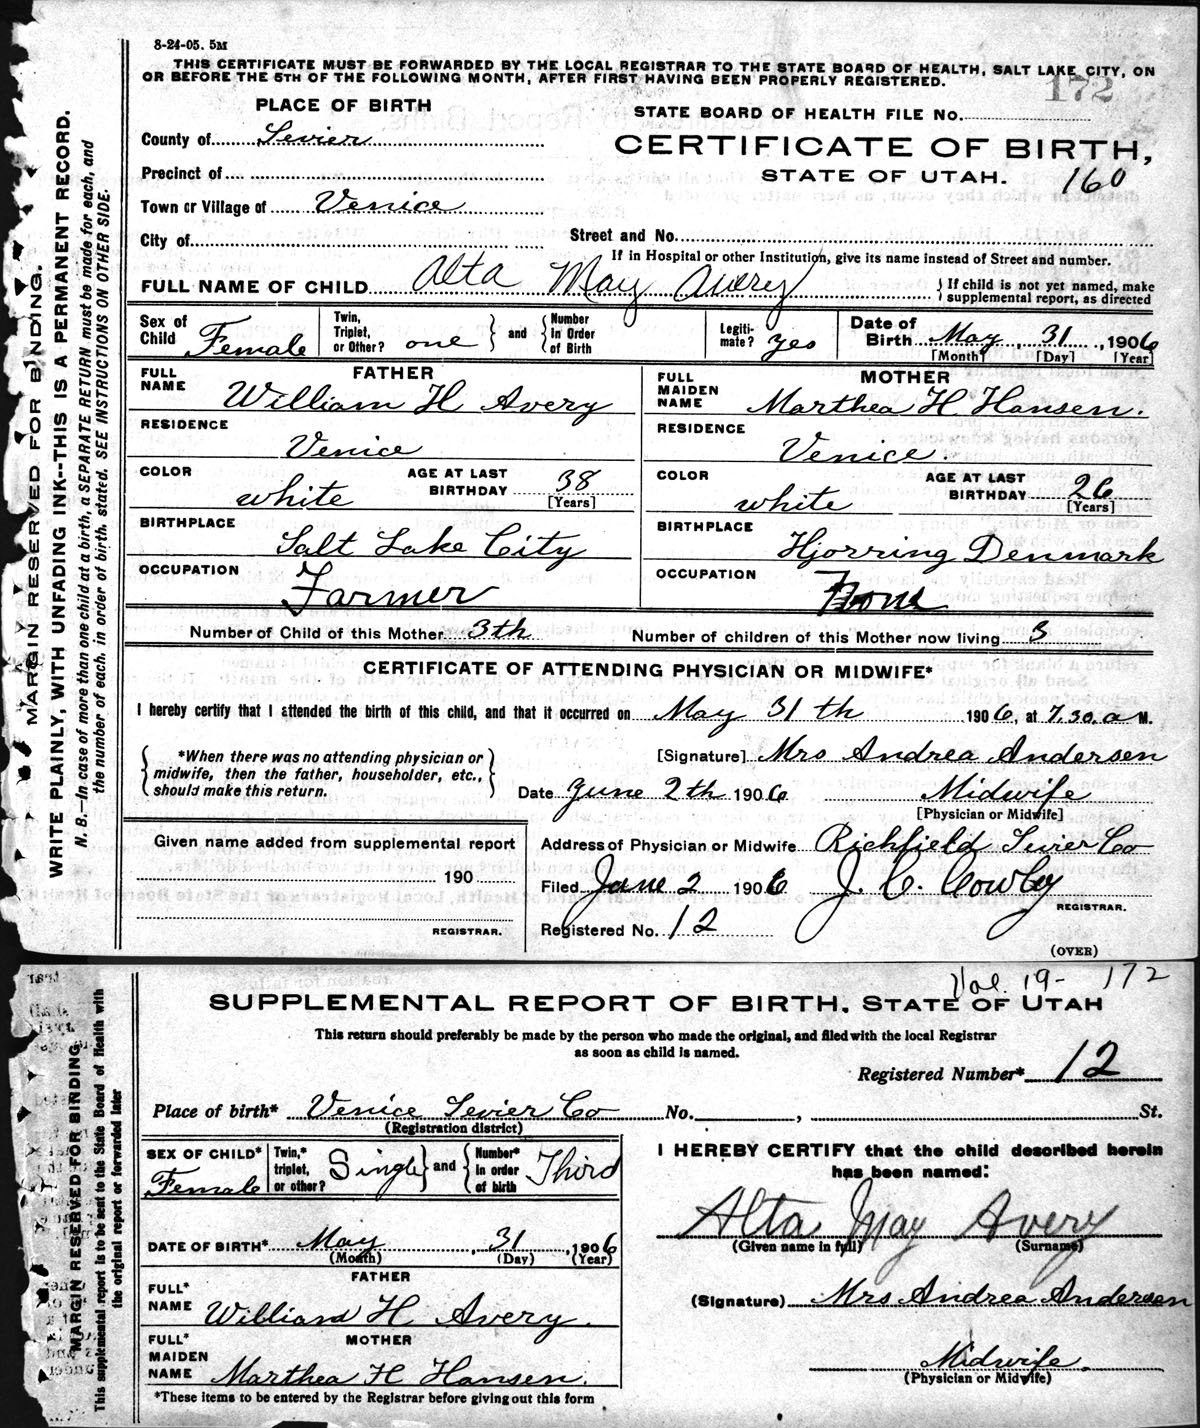 8-24-05. 5M
THIS CERTIFICATE MUST BE FORWARDED BY THE LOCAL REGISTRAR TO THE STATE BOARD OF HEALTH, SALT LAKE CITY, ON
OR BEFORE THE 5TH OF THE FOLLOWING MONTH, AFTER FIRST HAVING BEEN PROPERLY REGISTERED.
172
PLACE OF BIRTH
STATE BOARD OF HEALTH FILE No.
County of Sevier
CERTIFICATE OF BIRTH,
Precinct of
STATE OF UTAH. 160
Town or Village of Venice
City of
Street and No.
If in Hospital or other Institution, give its name instead of Street and number.
FULL NAME OF CHILD Alta May Avery
} If child is not yet named, make supplemental report, as directed
Sex of Child Female
Twin, Triplet, or Other? one } and { Number in Order of Birth
Legiti-mate? yes
Date of Birth May, 31, 1906
[Month] [Day] [Year]
FATHER
FULL NAME William H Avery
RESIDENCE Venice
COLOR white AGE AT LAST BIRTHDAY 38 [Years]
BIRTHPLACE Salt Lake City
OCCUPATION Farmer
MOTHER
FULL MAIDEN NAME Marthea H Hansen.
RESIDENCE Venice.
COLOR white AGE AT LAST BIRTHDAY 26 [Years]
BIRTHPLACE Hjorring Denmark
OCCUPATION None
Number of Child of this Mother 3th Number of children of this Mother now living 3
CERTIFICATE OF ATTENDING PHYSICIAN OR MIDWIFE*
I hereby certify that I attended the birth of this child, and that it occurred on May 31 th 1906, at 7.30. a M.
{ *When there was no attending physician or midwife, then the father, householder, etc., should make this return. }
[Signature] Mrs Andrea Andersen
Date June 2th 1906 Midwife
[Physician or Midwife]
Given name added from supplemental report
190
REGISTRAR.
Address of Physician or Midwife Richfield Sevier Co
Filed June 2 1906 J. C. Cowley
REGISTRAR.
Registered No. 12
(OVER)
MARGIN RESERVED FOR BINDING.
WRITE PLAINLY, WITH UNFADING INK--THIS IS A PERMANENT RECORD.
N. B.—In case of more than one child at a birth, a SEPARATE RETURN must be made for each, and
the number of each, in order of birth, stated. SEE INSTRUCTIONS ON OTHER SIDE.
Vol. 19- 172
SUPPLEMENTAL REPORT OF BIRTH, STATE OF UTAH
This return should preferably be made by the person who made the original, and filed with the local Registrar
as soon as child is named.
Registered Number* 12
Place of birth* Venice Sevier Co No. , St.
(Registration district)
SEX OF CHILD* Female
Twin,* triplet, or other? Single } and { Number* in order of birth Third
DATE OF BIRTH* May, 31, 1906
(Month) (Day) (Year)
FATHER
FULL* NAME William H Avery.
MOTHER
FULL* MAIDEN NAME Marthea H Hansen.
*These items to be entered by the Registrar before giving out this form
I HEREBY CERTIFY that the child described herein
has been named:
Alta May Avery
(Given name in full) (Surname)
(Signature) Mrs Andrea Andersen
Midwife.
(Physician or Midwife)
MARGIN RESERVED FOR BINDING
This supplemental report is to be sent to the State Board of Health with
the original report or forwarded later